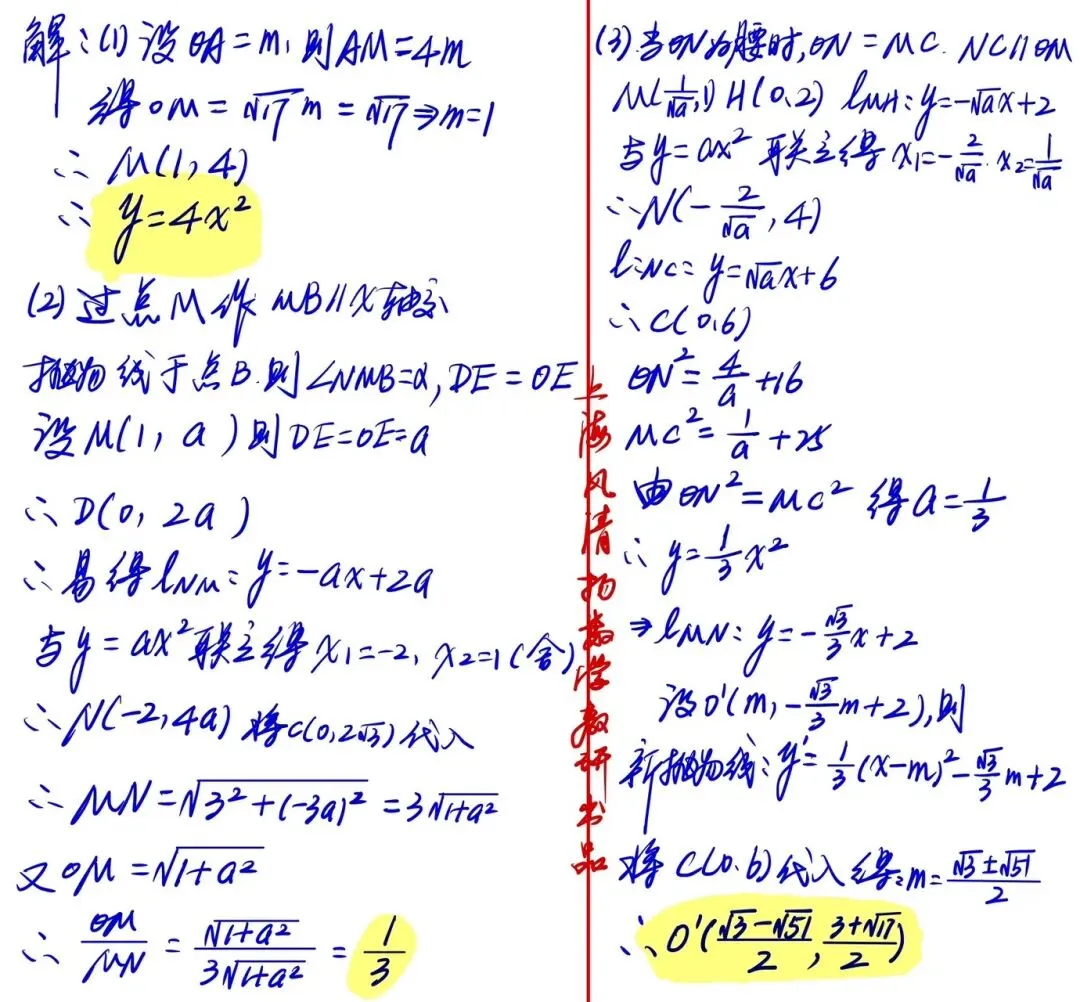 解：(1) 设OA=m，则AM=4m
得OM=√17 m=√17⇒m=1
∴ M(1, 4)
∴ y=4x²
(2) 过点M作MB∥X轴交
抛物线于点B.则∠NMB=α, DE=OE
设M(1, a)则DE=OE=a
∴ D(0, 2a)
∴ 易得lNM: y=-ax+2a
与y=ax²联立得x₁=-2, x₂=1(舍)
∴ N(-2, 4a) 将C(0, 2√3)代入
∴ MN=√(3²+(-3a)²)=3√(1+a²)
又OM=√(1+a²)
∴ OM/MN=√(1+a²)/(3√(1+a²))=1/3
上海风清扬数学教研出品
(3) 当ON为腰时, ON=MC. NC∥OM
M(1/√a, 1) H(0, 2) lMH: y=-√a x+2
与y=ax²联立得x₁=-2/√a. x₂=1/√a
∴ N(-2/√a, 4)
l:NC= y=√a x+6
∴ C(0, 6)
ON²=4/a+16
MC²=1/a+25
由ON²=MC² 得a=1/3
∴ y=1/3x²
⇒lMN: y=-√3/3x+2
设O'(m, -√3/3m+2), 则
新抛物线: y'=1/3(x-m)²-√3/3m+2
将C(0, 6)代入得: m=(√3±√51)/2
∴ O'((√3-√51)/2, (3+√17)/2)